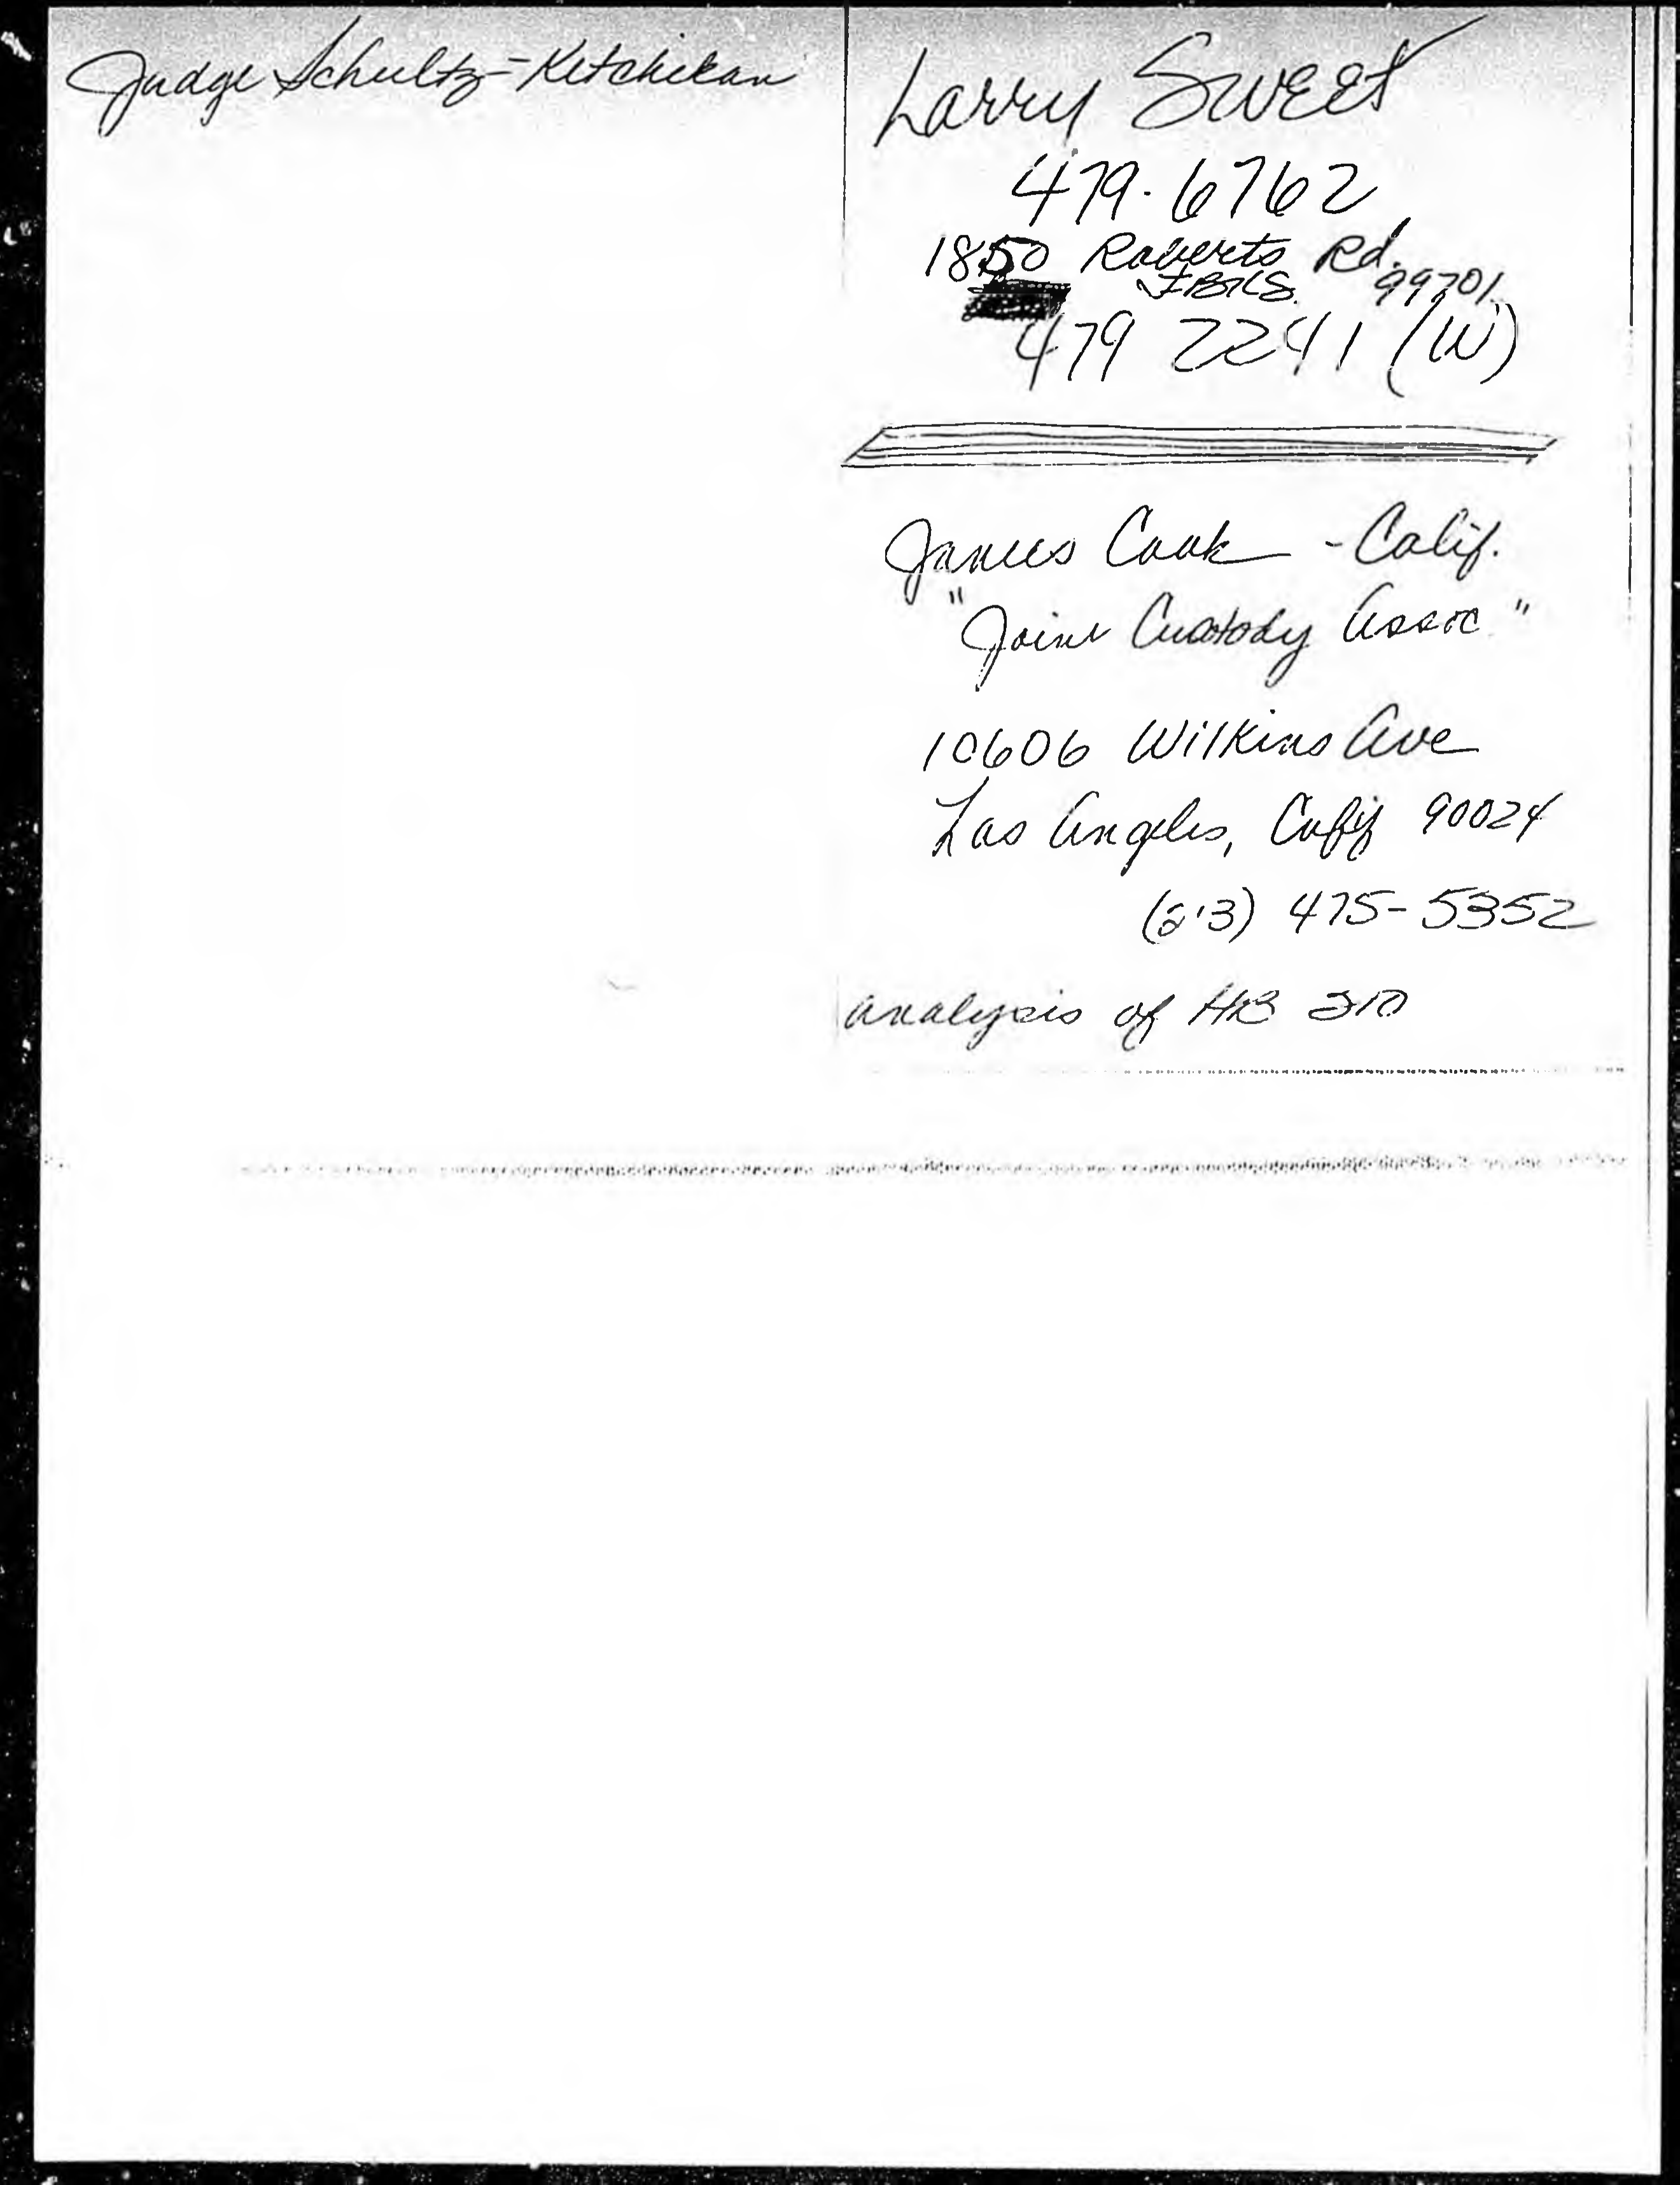 Judge Schultz - Ketchikan
Larry Sweet
479-6762
1850 Roberts Rd.
FBKS. 99701
479 2241 (W)
James Cook - Calif.
"Joint Custody Assoc"
10606 Wilkins Ave
Los Angeles, Calif 90024
(213) 475-5352
analysis of HB 210